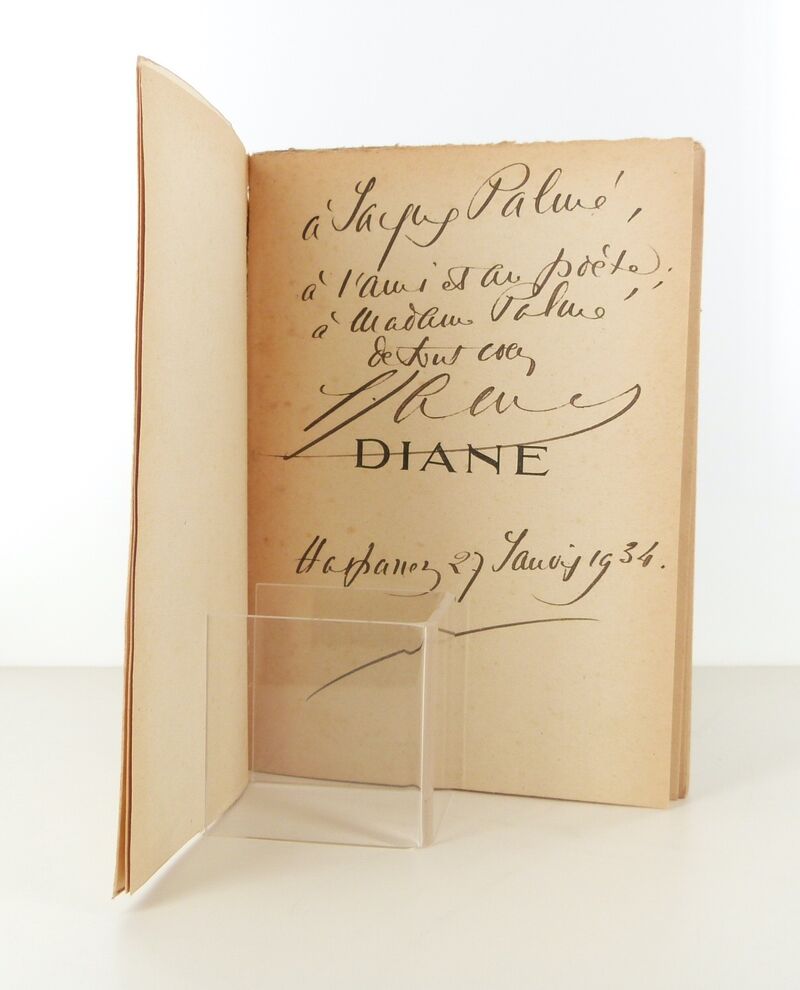 à Jacques Palmé,
à l'ami et au poète,
à Madame Palmé,
de tout coeur
F. Jammes
DIANE
Hasparren 27 Janvier 1934.